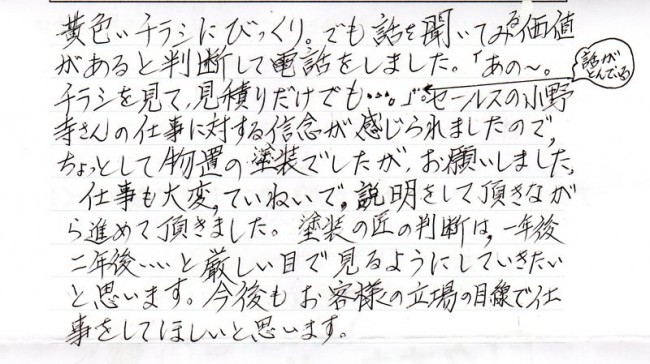 黄色いチラシにびっくり。でも話を聞いてみる価値
があると判断して電話をしました。「あの〜。
話が
とんでいる
チラシを見て、見積りだけでも・・・。」。セールスの小野
寺さんの仕事に対する信念が感じられましたので、
ちょっとして物置の塗装でしたが、お願いしました。
仕事も大変、ていねいで、説明をして頂きなが
ら進めて頂きました。塗装の匠の判断は、一年後
二年後・・・・と厳しい目で見るようにしていきたい
と思います。今後もお客様の立場の目線で仕
事をしてほしいと思います。